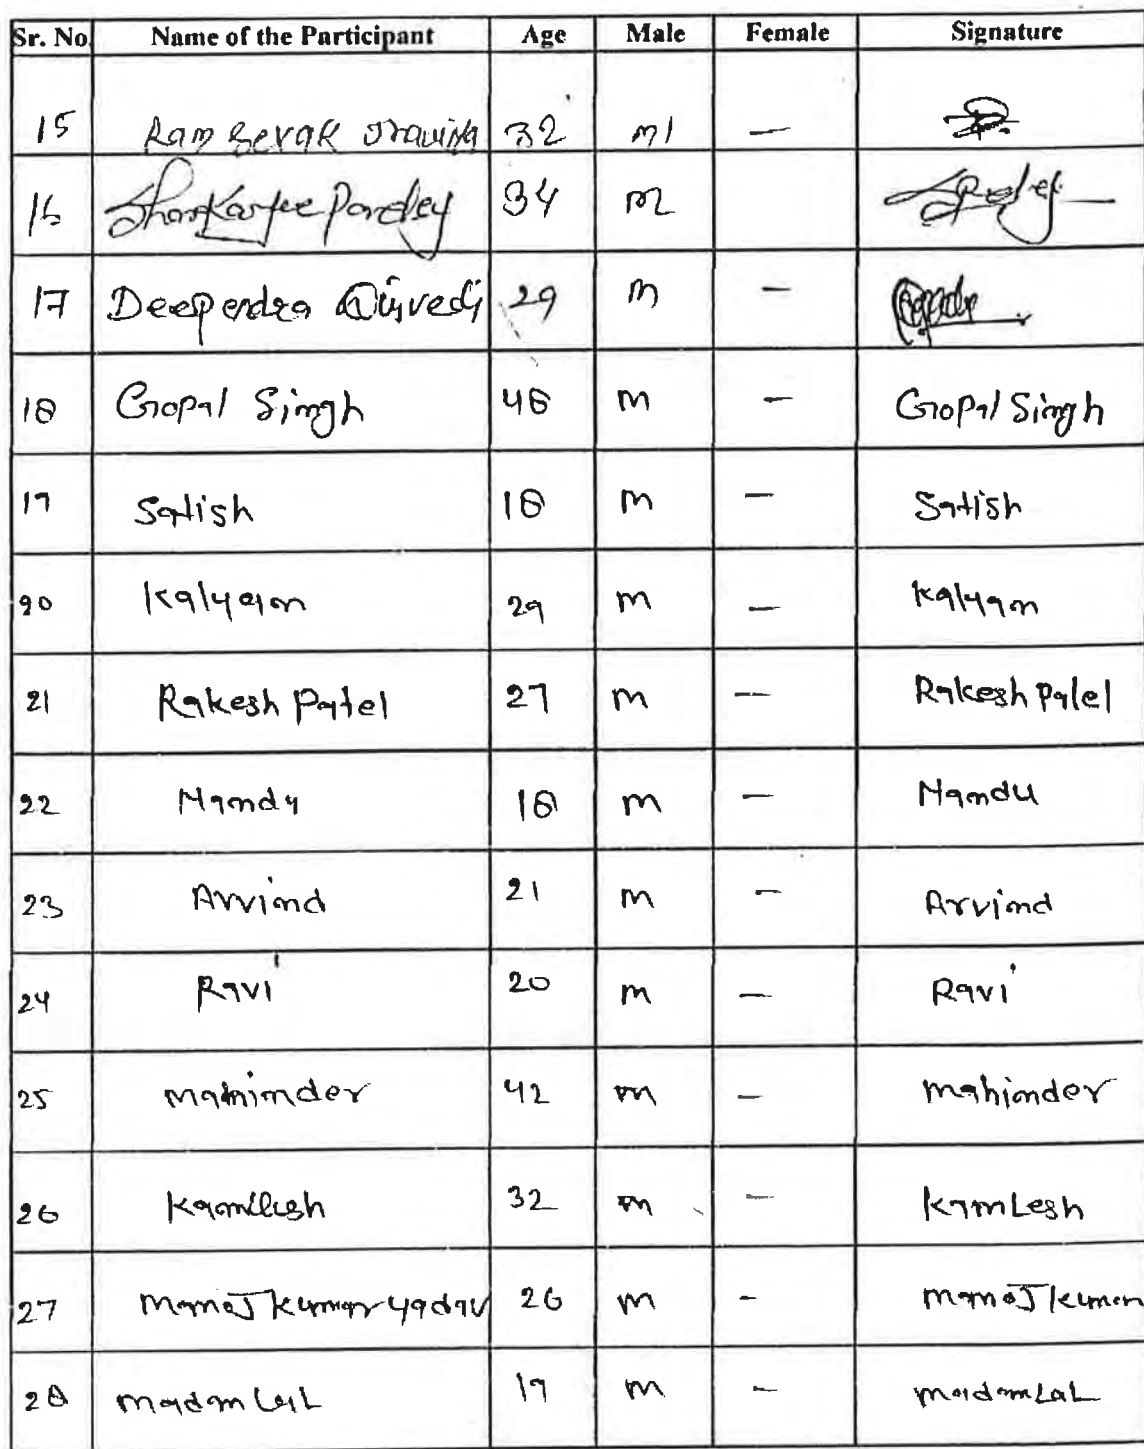 Sr. No. Name of the Participant Age Male Female Signature
15 Ram Sevak 32 m -
16 Shankarjee Pandey 34 m
17 Deependra Dwivedi 29 m -
18 Gopal Singh 48 m - Gopal Singh
19 Satish 18 m - Satish
20 Kalyan 29 m - Kalyan
21 Rakesh Patel 27 m - Rakesh Patel
22 Nandu 18 m - Nandu
23 Arvind 21 m - Arvind
24 Ravi 20 m - Ravi
25 Mahinder 42 m - Mahinder
26 Kamlesh 32 m - KamLesh
27 Manoj Kumar Yadav 26 m - Manoj Kumar
28 Madan LaL 19 m - Madan LaL